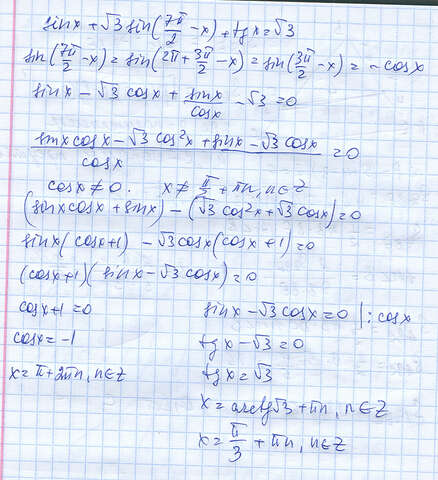 sinx + √3 sin(7π/2 - x) + tgx = √3
sin(7π/2 - x) = sin(2π + 3π/2 - x) = sin(3π/2 - x) = -cosx
sinx - √3 cosx + sinx/cosx - √3 = 0
(sinxcosx - √3 cos²x + sinx - √3 cosx)/cosx = 0
cosx ≠ 0. x ≠ π/2 + πn, n∈Z
(sinxcosx + sinx) - (√3 cos²x + √3 cosx) = 0
sinx(cosx+1) - √3cosx(cosx+1) = 0
(cosx+1)(sinx - √3cosx) = 0
cosx+1 = 0
cosx = -1
x = π + 2πn, n∈Z
sinx - √3cosx = 0 |: cosx
tgx - √3 = 0
tgx = √3
x = arctg√3 + πn, n∈Z
x = π/3 + πn, n∈Z